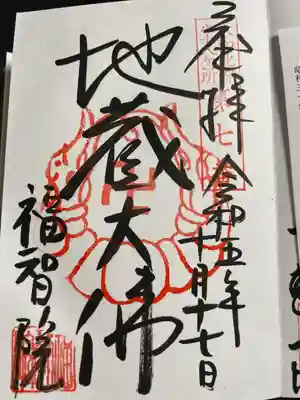 奉拝
令和五年
十月十七日
地蔵大佛
福智院